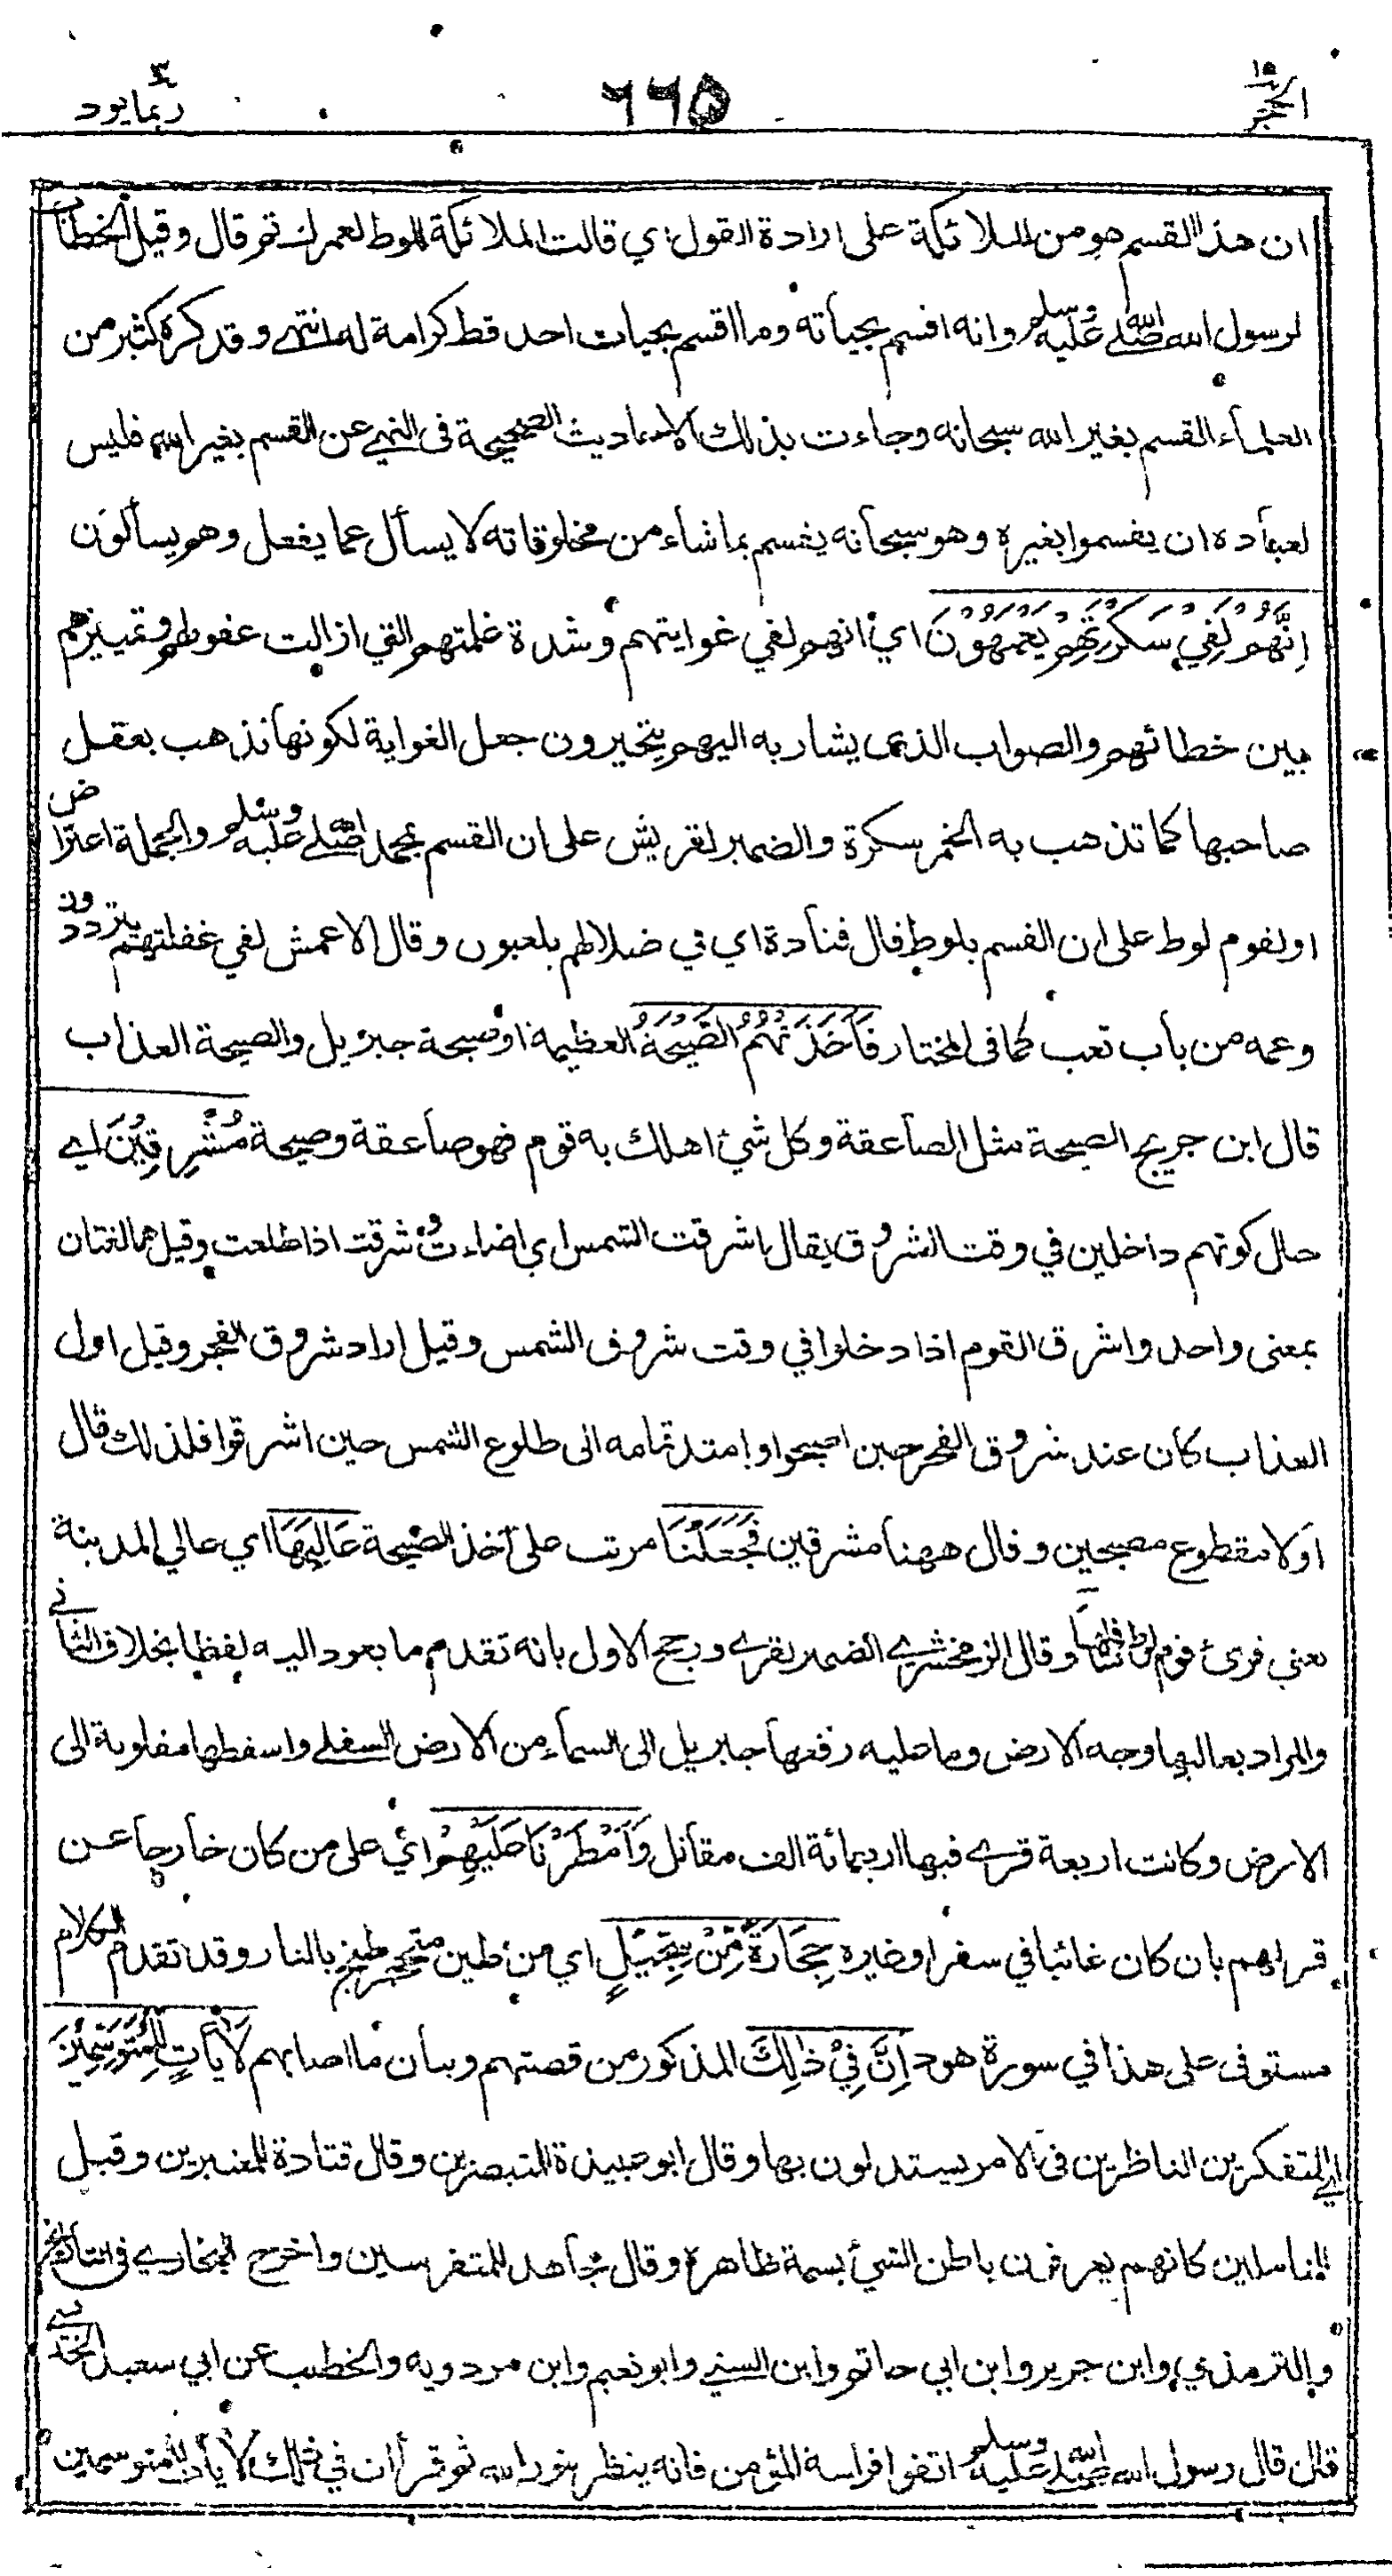 الحجر ١٥
٦٦٥
ربما يود
ان هذا القسم هو من الملائكة على ارادة القول اي قالت الملائكة للوط لعمرك ثم قال وقيل الخطاب
لرسول الله صلى الله عليه وسلم وانه اقسم بحياته وما اقسم بحيات احد قط كرامة له انتهى وقد كره كثير من
العلماء القسم بغير الله سبحانه وجاءت بذلك الاحاديث الصحيحة فى النهي عن القسم بغير الله فليس
لعباده ان يقسموا بغيره وهو سبحانه يقسم بما شاء من مخلوقاته لا يسأل عما يفعل وهم يسألون
اِنَّهُمْ لَفِيْ سَكْرَتِهِمْ يَعْمَهُوْنَ اي انهم لفي غوايتهم وشدة غلمتهم التي ازالت عقولهم وتمييزهم
بين خطائهم والصواب الذى يشار به اليهم يتحيرون جعل الغواية لكونها تذهب بعقل
صاحبها كما تذهب به الخمر سكرة والضمير لقريش على ان القسم بمحمد صلى الله عليه وسلم والجملة اعتراض
او لقوم لوط على ان القسم بلوط قال قتادة اي في ضلالهم يلعبون وقال الاعمش لفي غفلتهم يترددون
وعمه من باب تعب كما فى المختار فَاَخَذَتْهُمُ الصَّيْحَةُ العظيمة او صيحة جبريل والصيحة العذاب
قال ابن جريج الصيحة مثل الصاعقة وكل شيء اهلك به قوم فهو صاعقة وصيحة مُشْرِقِيْنَ اي
حال كونهم داخلين في وقت الشروق يقال اشرقت الشمس اي اضاءت وشرقت اذا طلعت وقيل هما لغتان
بمعنى واحد واشرق القوم اذا دخلوا في وقت شروق الشمس وقيل اراد شروق الفجر وقيل اول
العذاب كان عند شروق الفجر حين اصبحوا وامتد تمامه الى طلوع الشمس حين اشرقوا فلذلك قال
اولا مقطوع مصبحين وقال ههنا مشرقين فَجَعَلْنَا مرتب على اخذ الصيحة عَالِيَهَا اي عالي المدينة
يعني قرى قوم لوط وقال الزمخشري الضمير لقرى ورجح الاول بانه تقدم ما يعود اليه لفظا بخلاف الثاني
والمراد بعاليها وجه الارض وما عليه رفعها جبريل الى السماء من الارض السفلى واسقطها مقلوبة الى
الارض وكانت اربعة قرى فيها اربعمائة الف مقاتل وَاَمْطَرْنَا عَلَيْهِمْ اي على من كان خارجا عن
قراهم بان كان غائبا في سفر او غيره حِجَارَةً مِّنْ سِجِّيْلٍ اي من طين متحجر طبخ بالنار وقد تقدم الكلام
مستوفى على هذا في سورة هود اِنَّ فِيْ ذٰلِكَ المذكور من قصتهم وبيان ما اصابهم لَاٰيَاتٍ لِّلْمُتَوَسِّمِيْنَ
اي للمتفكرين الناظرين فى الامر يستدلون بها وقال ابو عبيدة للمتبصرين وقال قتادة للمعتبرين وقيل
للمتاملين كانهم يعرفون باطن الشيء بسمة ظاهرة وقال مجاهد للمتفرسين واخرج البخاري فى التاريخ
والترمذي وابن جرير وابن ابي حاتم وابن السني وابو نعيم وابن مردويه والخطيب عن ابي سعيد الخدري
قال قال رسول الله صلى الله عليه وسلم اتقوا فراسة المؤمن فانه ينظر بنور الله ثم قرأ ان في ذلك لايات للمتوسمين